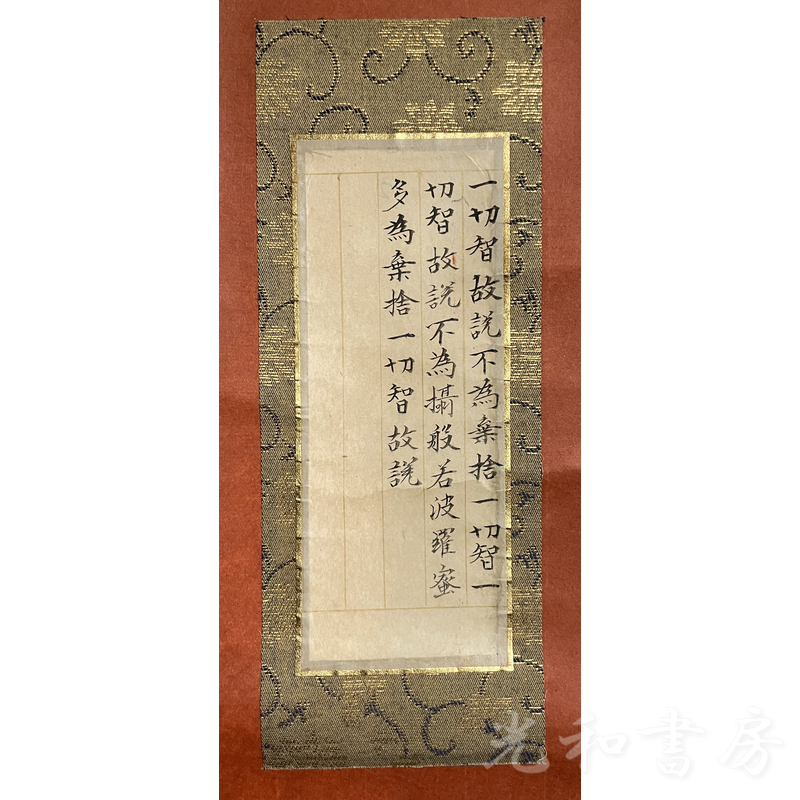 一切智故說不為棄捨一切智一
切智故說不為攝般若波羅蜜
多為棄捨一切智故說
光和書房